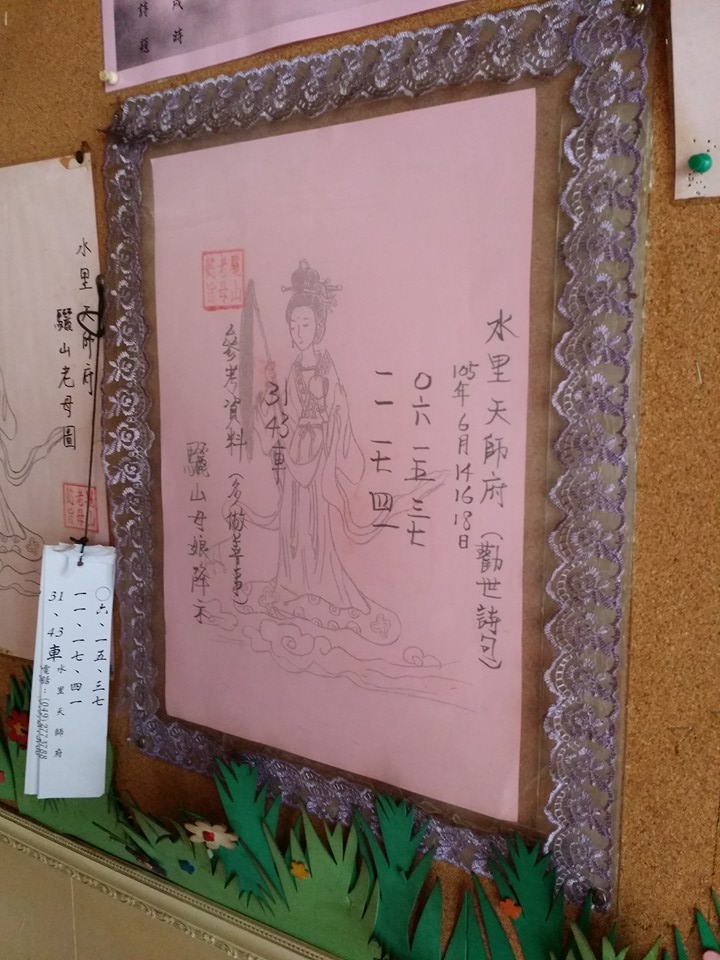 水里天師府（勸世詩句）
105年6月14 16 18日
〇六 一五 三七
一一 一七 四一
31 43車
參考資料（多做善事）
驪山母娘降示
水里天師府
驪山老母圖
〇六、一五、三七
一一、一七、四一
31、43車
水里天師府
電話：